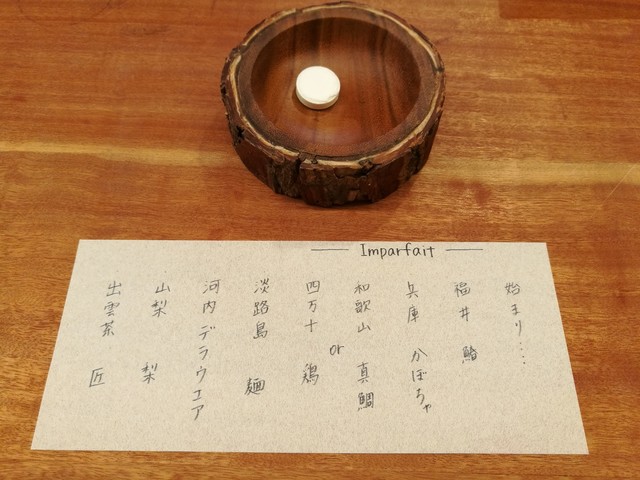 Imparfait
始まり…
福井 鮨
兵庫 かぼちゃ
和歌山 真鯛
or
四万十 鶏
淡路島 麺
河内デラウエア
山梨 梨
出雲茶 匠